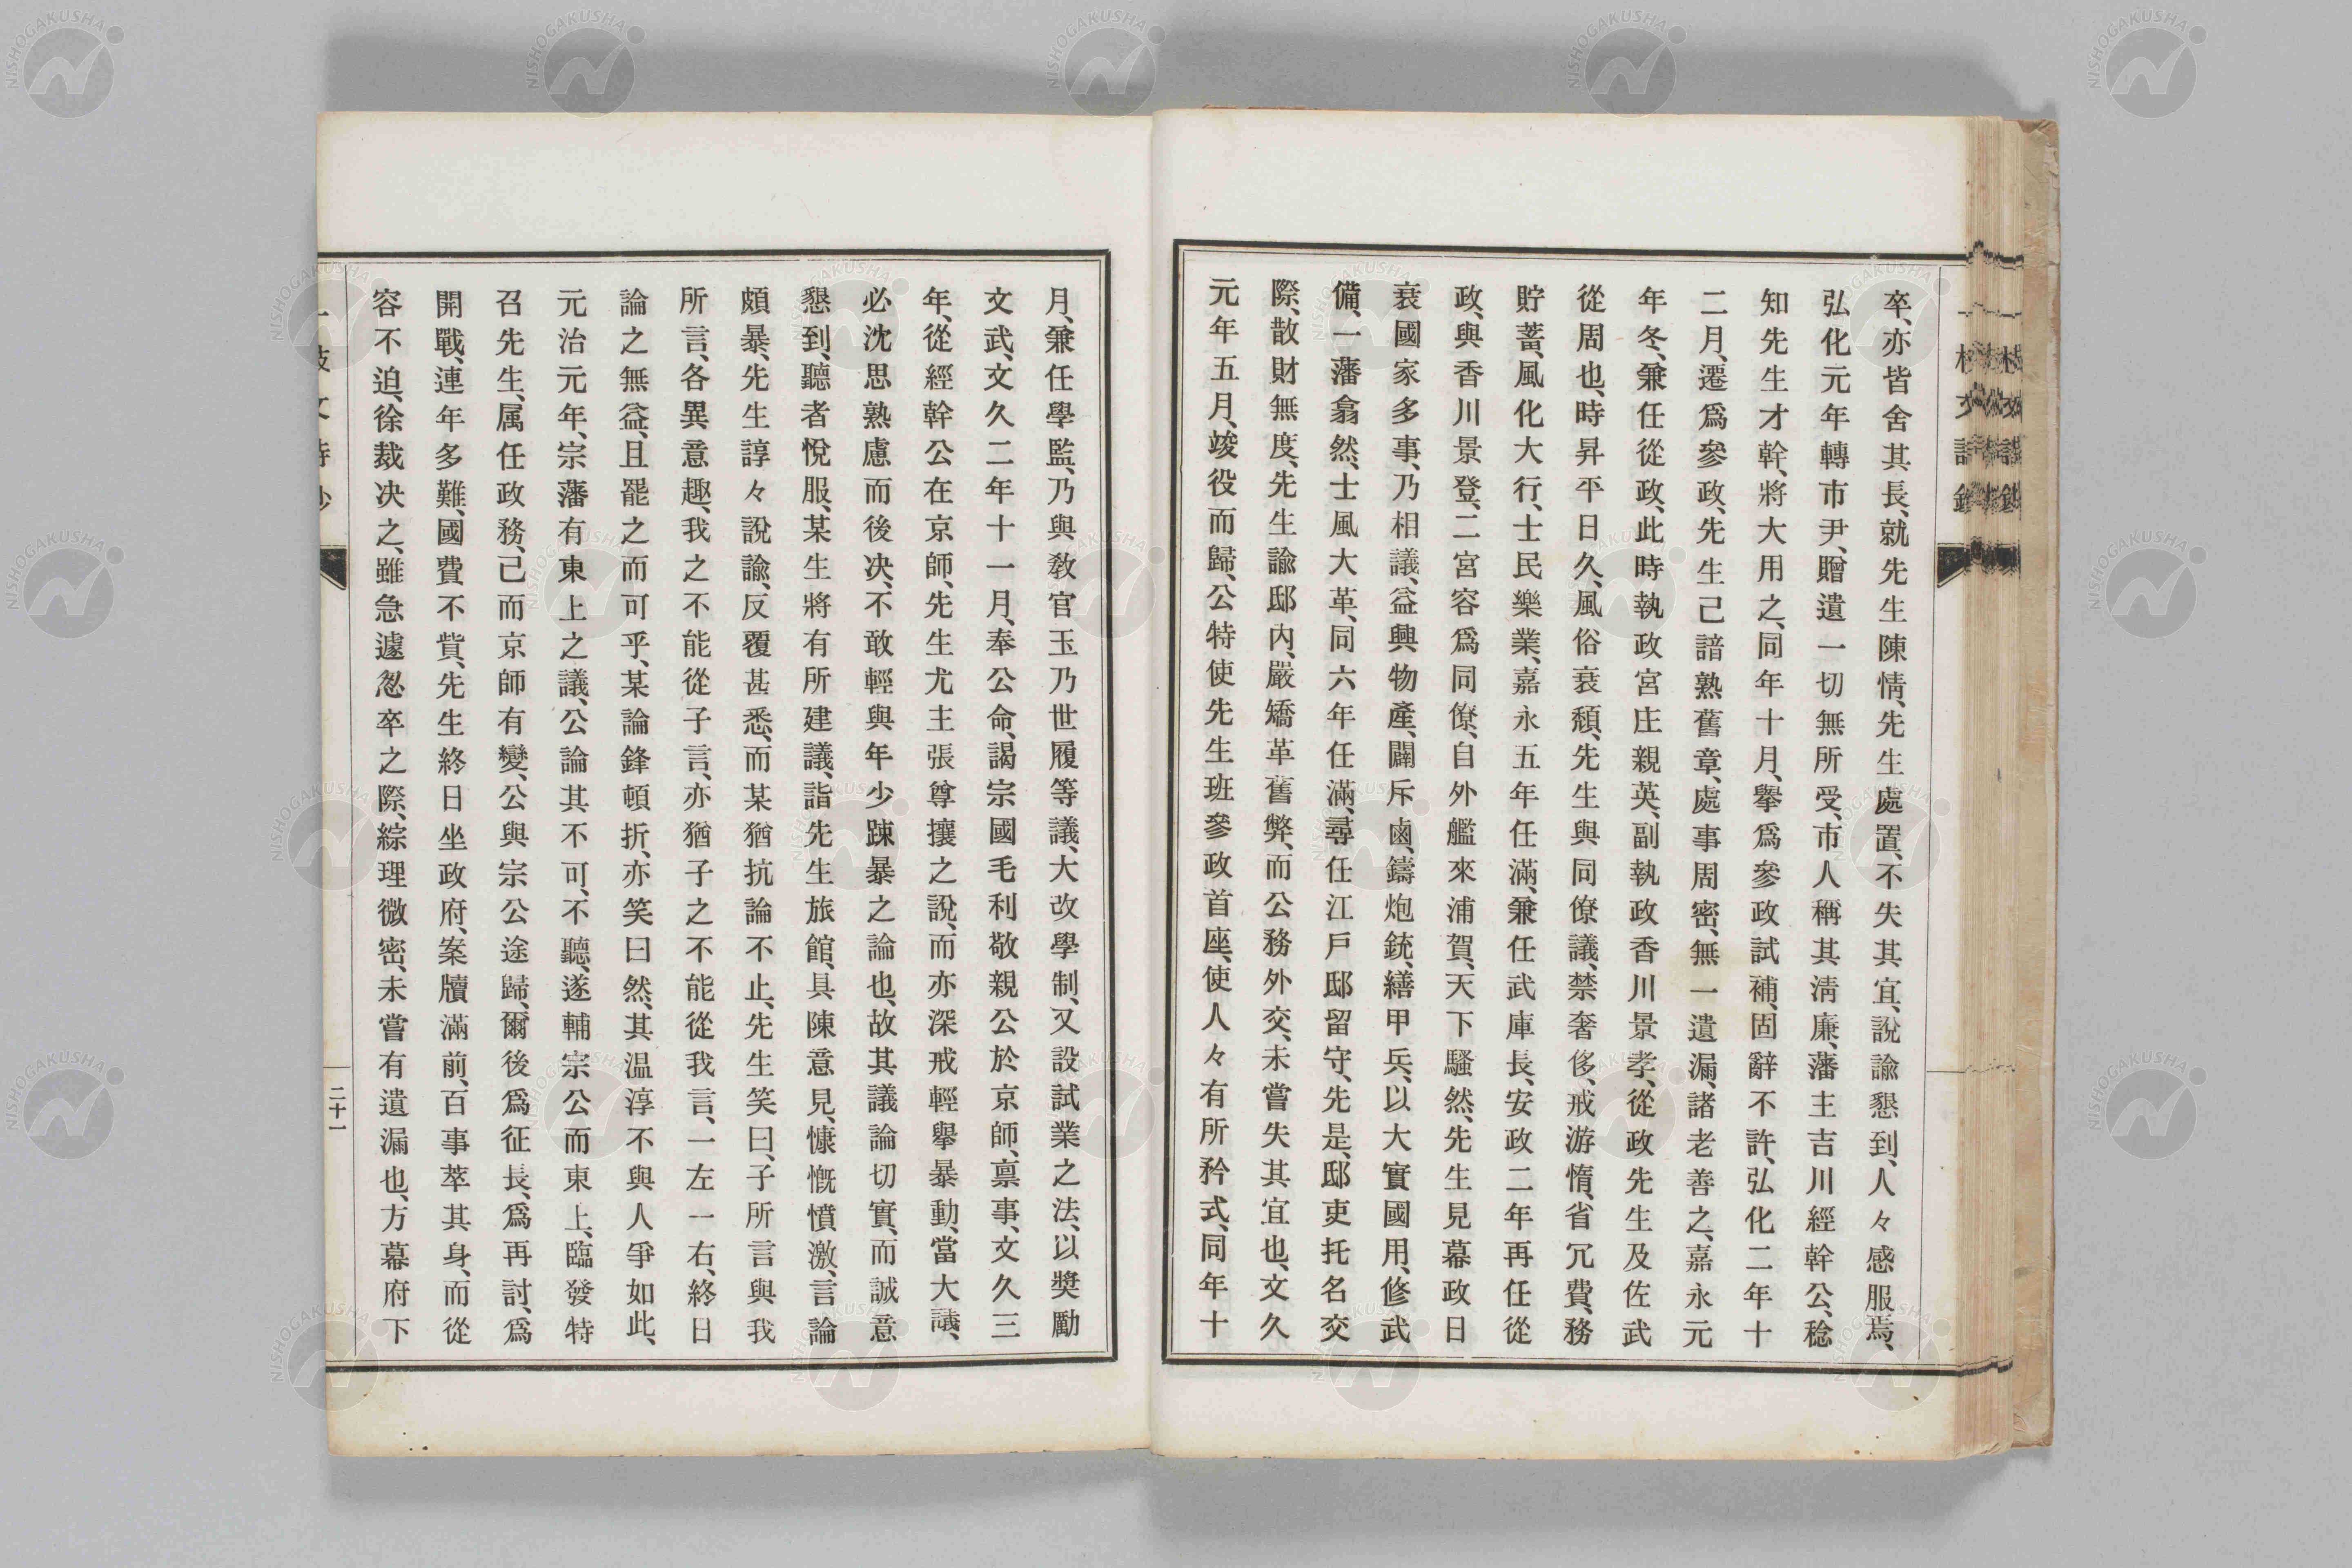 卒、亦皆舍其長、就先生陳情、先生處置、不失其宜、說諭懇到、人々感服焉、
弘化元年轉市尹、贈遺一切無所受、市人稱其淸廉、藩主吉川經幹公、稔
知先生才幹、將大用之、同年十月、擧爲參政試補、固辭不許、弘化二年十
二月、遷爲參政、先生已諳熟舊章、處事周密、無一遺漏、諸老善之、嘉永元
年冬、兼任從政、此時執政宮庄親英、副執政香川景孝、從政先生及佐武
從周也、時昇平日久、風俗衰頽、先生與同僚議、禁奢侈、戒游惰、省冗費、務
貯蓄、風化大行、士民樂業、嘉永五年任滿、兼任武庫長、安政二年再任從
政、與香川景登、二宮容爲同僚、自外艦來浦賀、天下騷然、先生見幕政日
衰國家多事、乃相議、益興物產、闢斥鹵、鑄炮銃、繕甲兵、以大實國用、修武
備、一藩翕然、士風大革、同六年任滿、尋任江戶邸留守、先是、邸吏托名交
際、散財無度、先生諭邸內、嚴矯革舊弊、而公務外交、未嘗失其宜也、文久
元年五月、竣役而歸、公特使先生班參政首座、使人々有所矜式、同年十
月、兼任學監、乃與敎官玉乃世履等議、大改學制、又設試業之法、以奬勵
文武、文久二年十一月、奉公命、謁宗國毛利敬親公於京師、稟事、文久三
年、從經幹公在京師、先生尤主張尊攘之說、而亦深戒輕擧暴動、當大議、
必沈思熟慮而後決、不敢輕與年少踈暴之論也、故其議論切實、而誠意
懇到、聽者悅服、某生將有所建議、詣先生旅館、具陳意見、慷慨憤激、言論
頗暴、先生諄々說諭、反覆甚悉、而某猶抗論不止、先生笑曰、子所言與我
所言、各異意趣、我之不能從子言、亦猶子之不能從我言、一左一右、終日
論之無益、且罷之而可乎、某論鋒頓折、亦笑曰然、其温淳不與人爭如此、
元治元年、宗藩有東上之議、公論其不可、不聽、遂輔宗公而東上、臨發特
召先生、属任政務、已而京師有變、公與宗公途歸、爾後爲征長、爲再討、爲
開戰、連年多難、國費不貲、先生終日坐政府、案牘滿前、百事萃其身、而從
容不迫、徐裁决之、雖急遽怱卒之際、綜理微密、未嘗有遺漏也、方幕府下
二十一